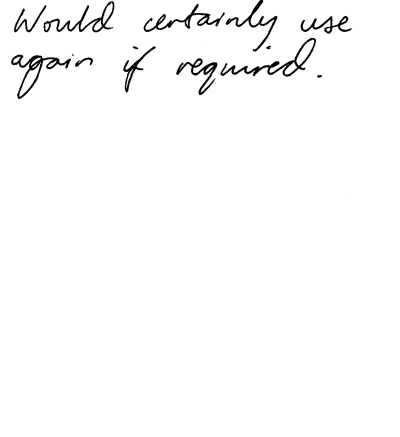 Would certainly use
again if required.